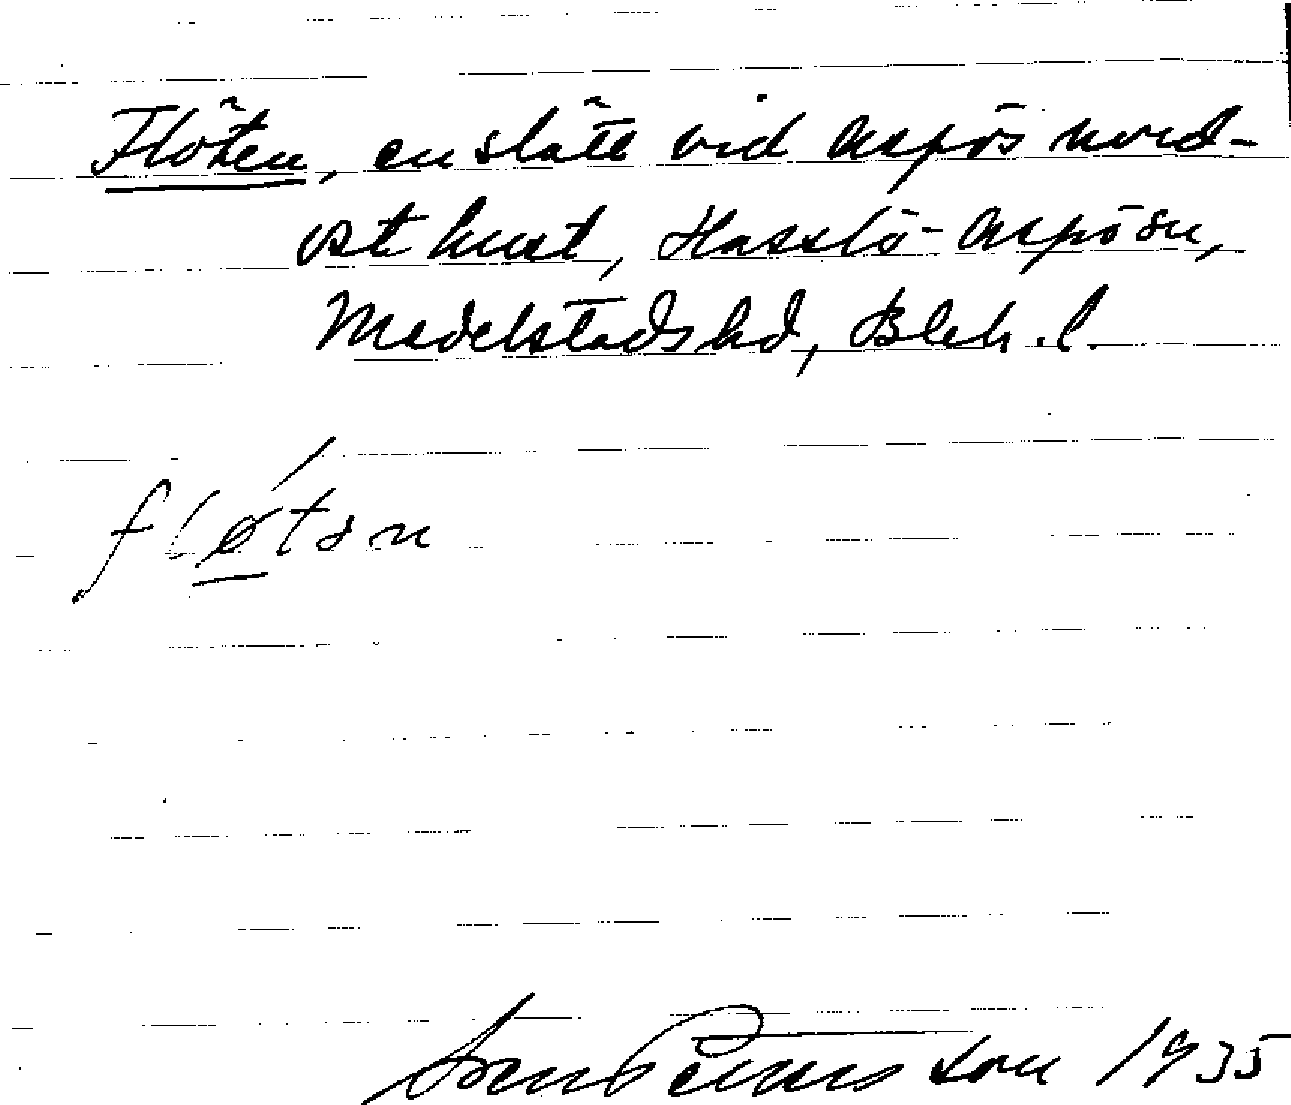 Flöten, en slätt vid Aspös nord-
ost kust, Hasslö-Aspö sn,
Medelstads hd, Blek. l.
fløtən
Pettersson 1935